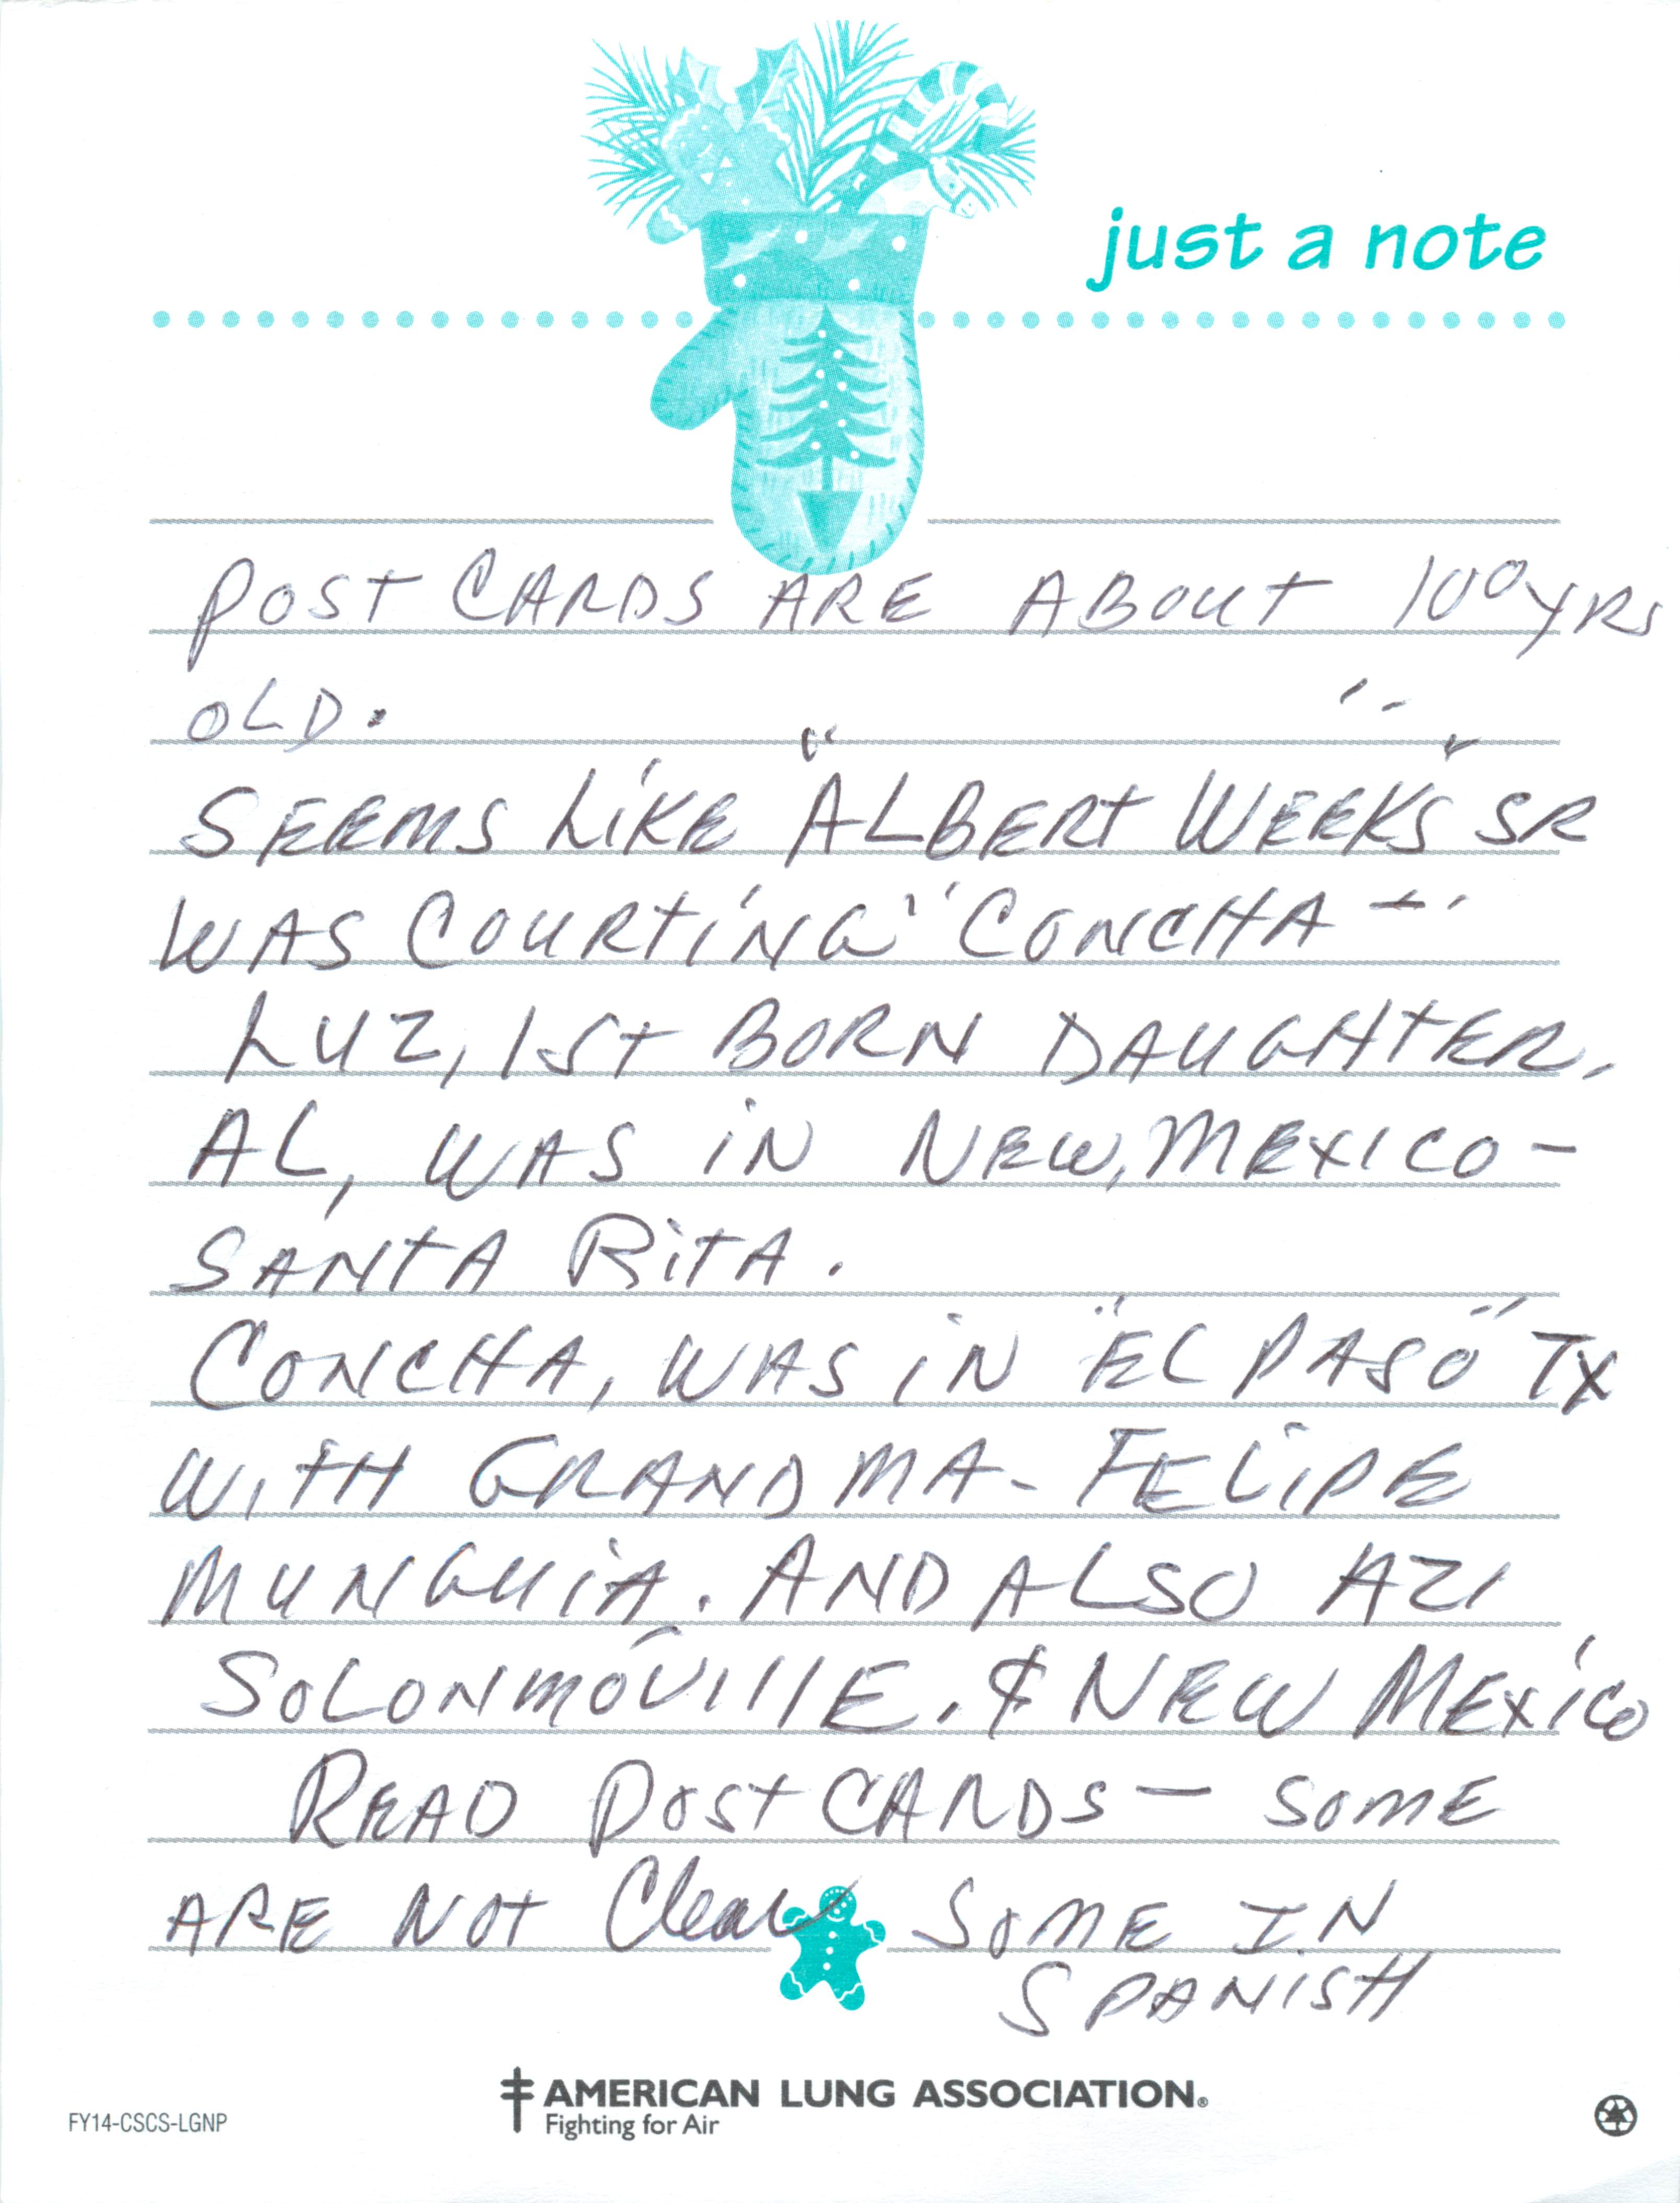 just a note
POST CARDS ARE ABOUT 100 YRS
OLD.
SEEMS LIKE "ALBERT WEEKS" SR
WAS COURTING "CONCHA"
LUZ, 1ST BORN DAUGHTER.
AL, WAS IN NEW, MEXICO -
SANTA RITA.
CONCHA, WAS IN "EL PASO" TX
WITH GRANDMA - FELIPE
MUNGUIA. AND ALSO AZ
SOLONMOVILLE. & NEW MEXICO
READ POST CARDS - SOME
ARE NOT Clear SOME IN
SPANISH
AMERICAN LUNG ASSOCIATION®
Fighting for Air
FY14-CSCS-LGNP